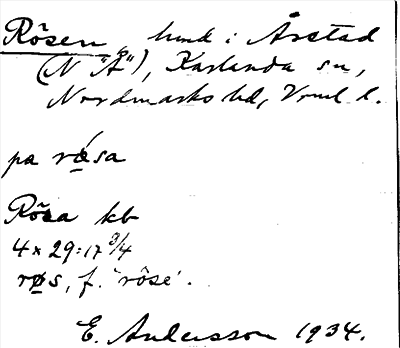 Rösen, lund i Årstad
(N "Å"), Karlanda sn,
Nordmarks hd, Vrml l.
pa rø̀sa
Rösa kb
4 x 29:17 3/4
røs, f. 'röse'.
E. Andersson 1934.